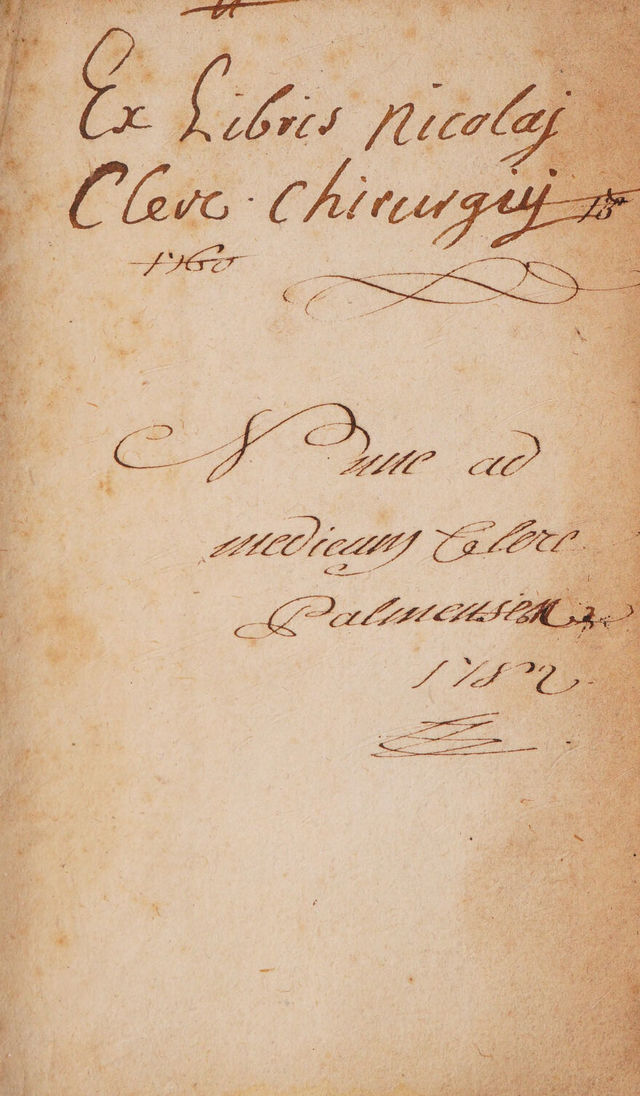 Ex Libris Nicolaj
Clerc chirurgij
1760
Nunc ad
medicum Clerc
Palmensem
1782